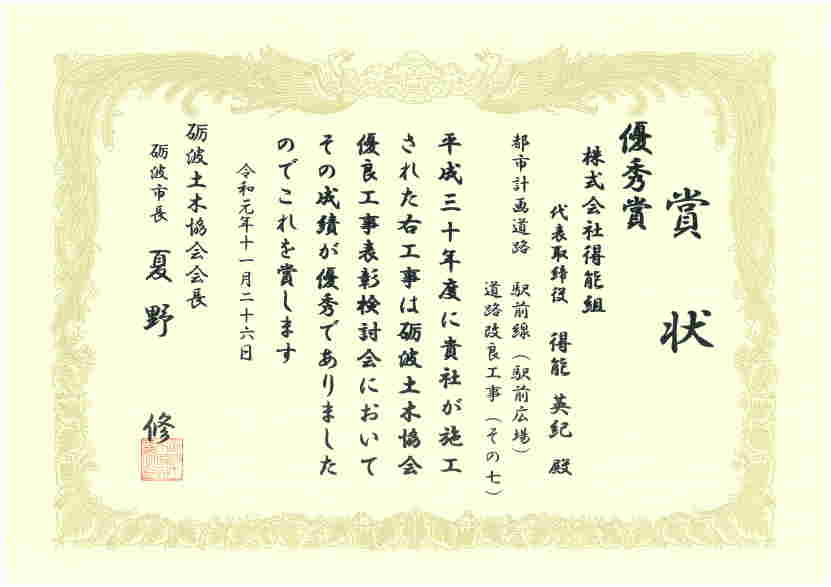 賞状
優秀賞
株式会社得能組
代表取締役 得能 英紀 殿
都市計画道路 駅前線（駅前広場）
道路改良工事（その七）
平成三十年度に貴社が施工
された右工事は砺波土木協会
優良工事表彰検討会において
その成績が優秀でありました
のでこれを賞します
令和元年十一月二十六日
砺波土木協会会長
砺波市長 夏野 修